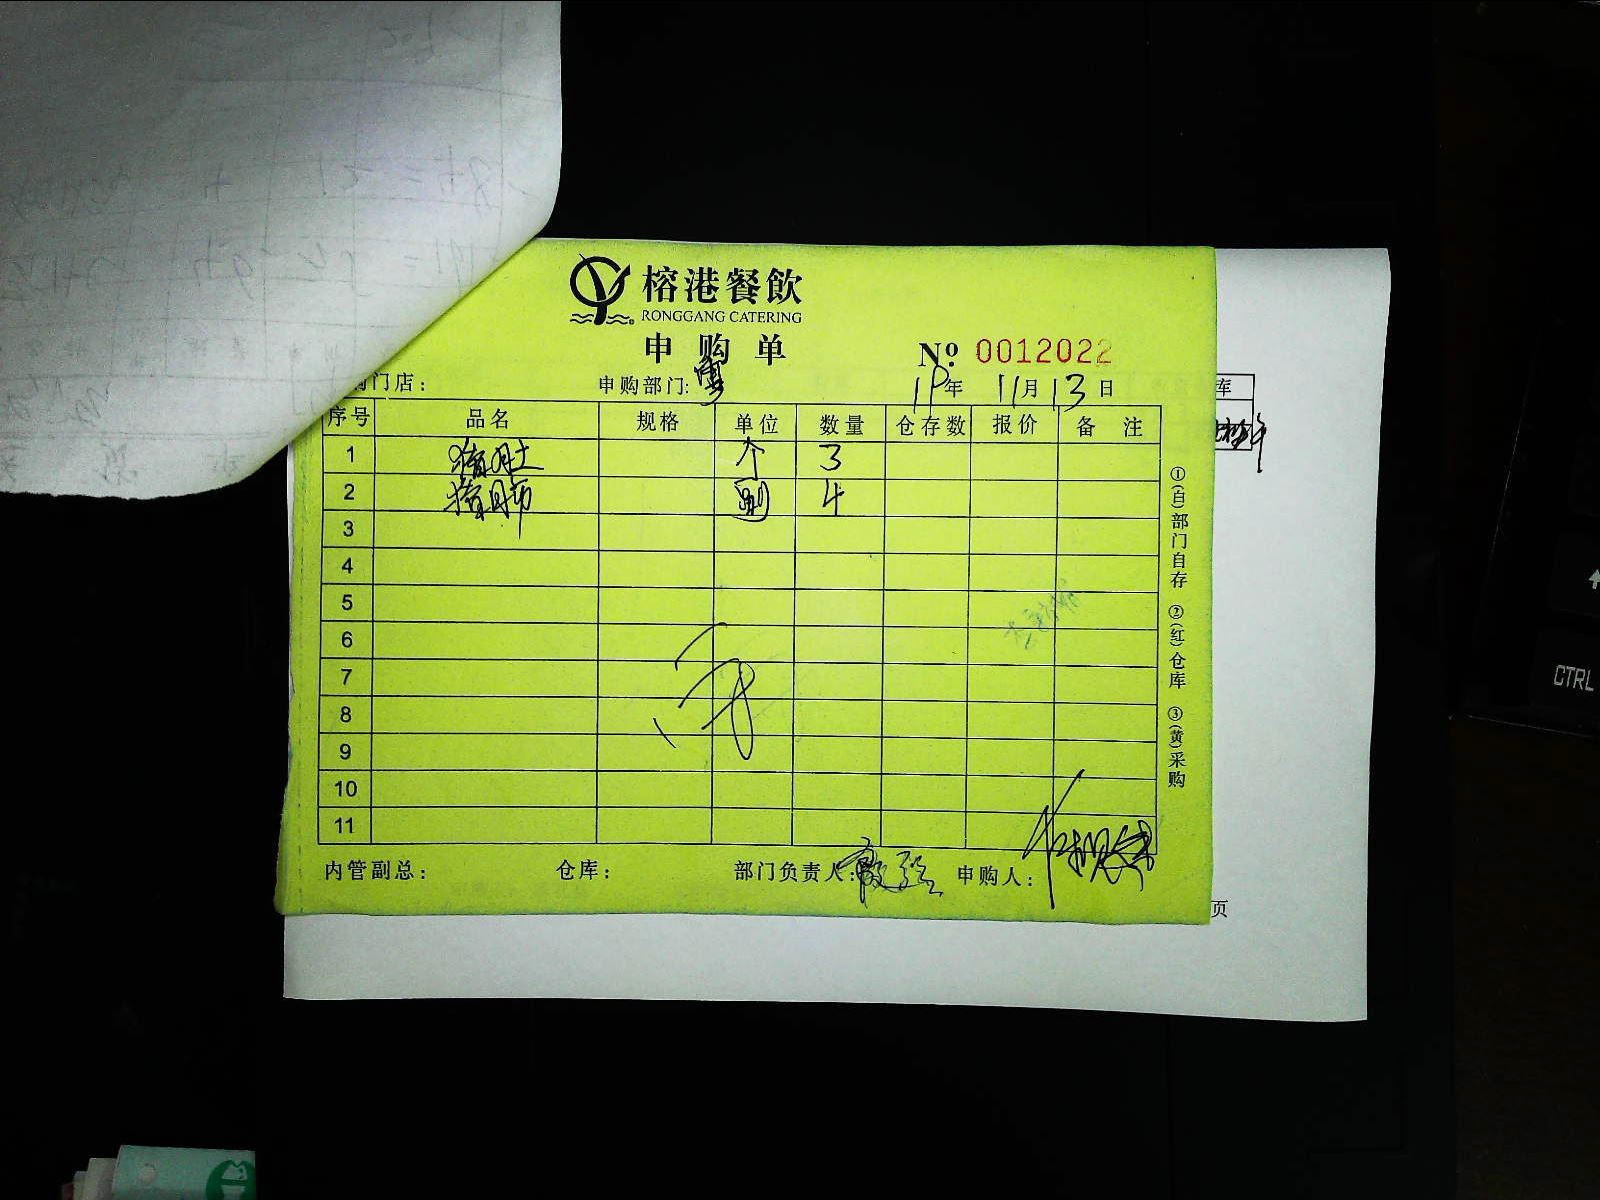 榕港餐飲
RONGGANG CATERING
申购单
№ 0012022
门店： 申购部门: 19年 11月13日
序号 品名 规格 单位 数量 仓存数 报价 备注
1 猪肚 个 3
2 猪肺 副 4
3
4
5
6
7
8
9
10
11
内管副总： 仓库： 部门负责人： 申购人：
①(白)部门自存 ②(红)仓库 ③(黄)采购
库
页
CTRL